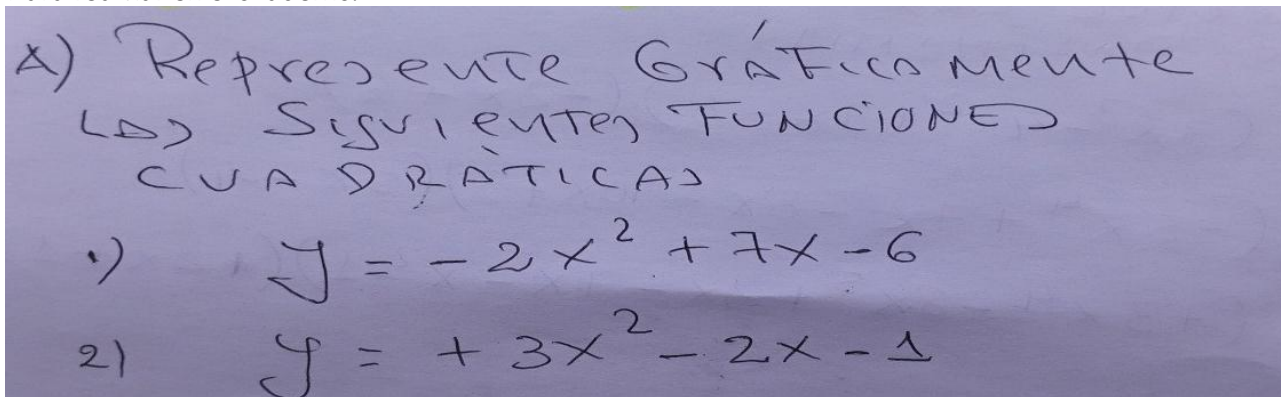 A) Represente Gráficamente
LAS Siguientes FUNCIONES
CUADRÁTICAS
1) y = -2x² + 7x - 6
2) y = + 3x² - 2x - 1